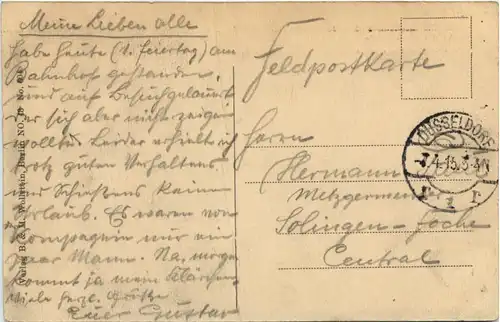 Meine Lieben alle
habe heute (1. Feiertag) am
Bahnhof gestanden
und auf Besuch gelauert
der sich aber nicht zeigen
wollte. Leider erhielt ich
trotz guten Verhaltens
und Schießens keinen
Urlaub. Es waren von
Kompagnie nur ein
paar Mann. Na, morgen
kommt ja mein Klärchen
Viele herzl. Grüße
Euer Gustav
Feldpostkarte
Herrn
Hermann
Metzgermeister
Solingen-Foche
Central
DÜSSELDORF
4.15.3-4N
1 r